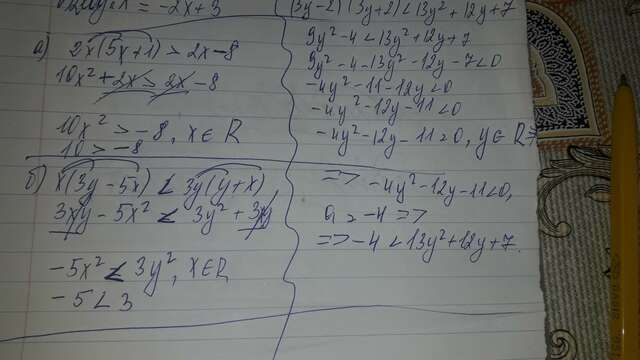 = -2x+3
а) 2x(5x+1) > 2x-8
10x² + 2x > 2x - 8
10x² > -8, x ∈ R
10 > -8
б) x(3y - 5x) < 3y(y+x),
3xy - 5x² < 3y² + 3xy
-5x² < 3y², x ∈ R
-5 < 3
(3y-2)(3y+2) < 13y² + 12y + 7
9y² - 4 < 13y² + 12y + 7
9y² - 4 - 13y² - 12y - 7 < 0
-4y² - 11 - 12y < 0
-4y² - 12y - 11 < 0
-4y² - 12y - 11 = 0, y ∈ R =>
=> -4y² - 12y - 11 < 0,
a = -4 =>
=> -4 < 13y² + 12y + 7.